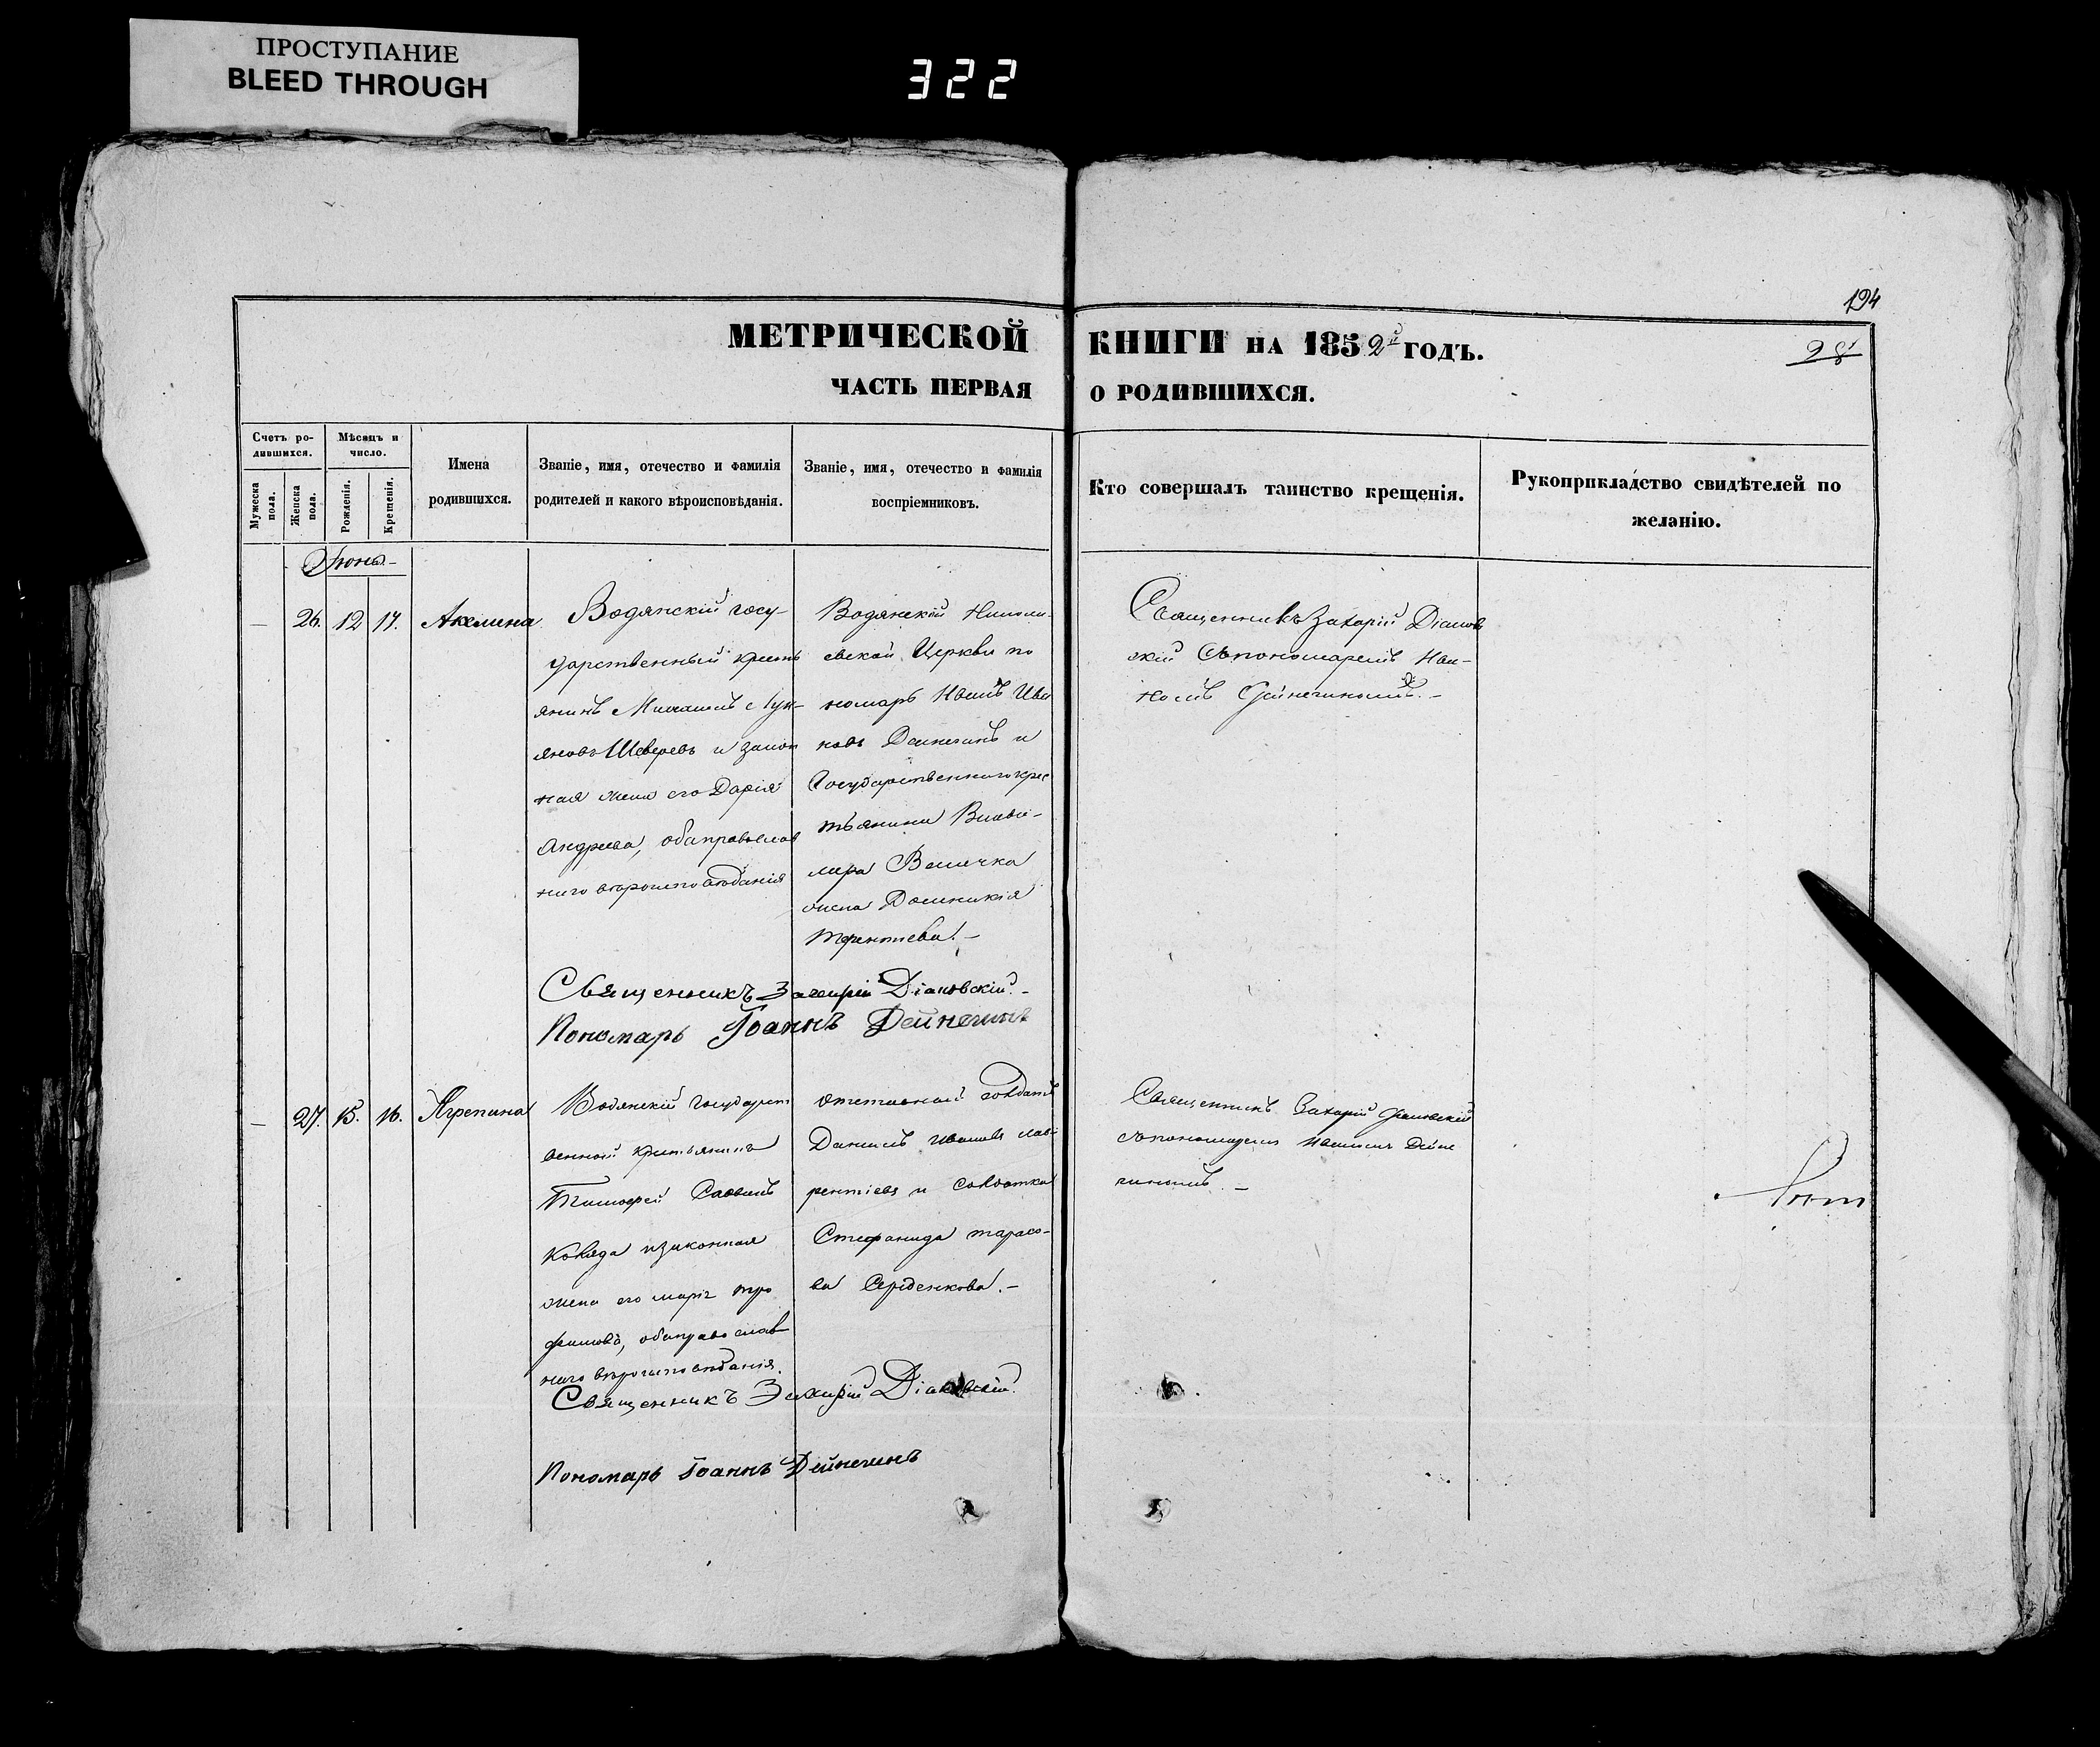 ПРОСТУПАНИЕ
BLEED THROUGH
322
194
МЕТРИЧЕСКОЙ КНИГИ НА 1852й ГОДЪ.
28
ЧАСТЬ ПЕРВАЯ О РОДИВШИХСЯ.
Счетъ ро-
дившихся.
Мѣсяцъ и
число.
Мужеска
пола.
Женска
пола.
Рожденія.
Крещенія.
Имена
родившихся.
Званіе, имя, отечество и фамилія
родителей и какого вѣроисповѣданія.
Званіе, имя, отечество и фамилія
воспріемниковъ.
Кто совершалъ таинство крещенія.
Рукоприкладство свидѣтелей по
желанію.
Іюнь
26. 12 17. Акелина
Водянскій госу-
дарственный крестъ
янинъ Михаилъ Лук-
яновъ Шеверевъ и закон
ная жена его Дарія
Андреева, оба православ
наго вѣроисповѣданія
Водянской Никола-
евской Церкви по
номарь Иванъ Ива
новъ Дейнегинъ и
Государственнаго крес
тьянина Влади-
мера Величка
жена Домникія
Терентева. -
Священникъ Захарій Діановъ
скій съ пономаремъ Ива-
номъ Дейнегиномъ. -
Священникъ Захарій Діановскій. -
Пономарь Іоаннъ Дейнегинъ
27. 15. 16. Агрепина
Водянскій государст
венный крестьянинъ
Тимофей Саввинъ
Коляда и законная
жена его марія тро
фимова, оба православ
наго вѣроисповѣданія.
отставной солдатъ
Даниилъ Ивановъ Лав-
рентіевъ и солдатка
Стефанида тарасо-
ва Середенкова. -
Священникъ Захарій Діановскій
съ пономаремъ Иваномъ Дейне
гиномъ. -
Священникъ Захарій Діановскій.
Пономарь Іоаннъ Дейнегинъ